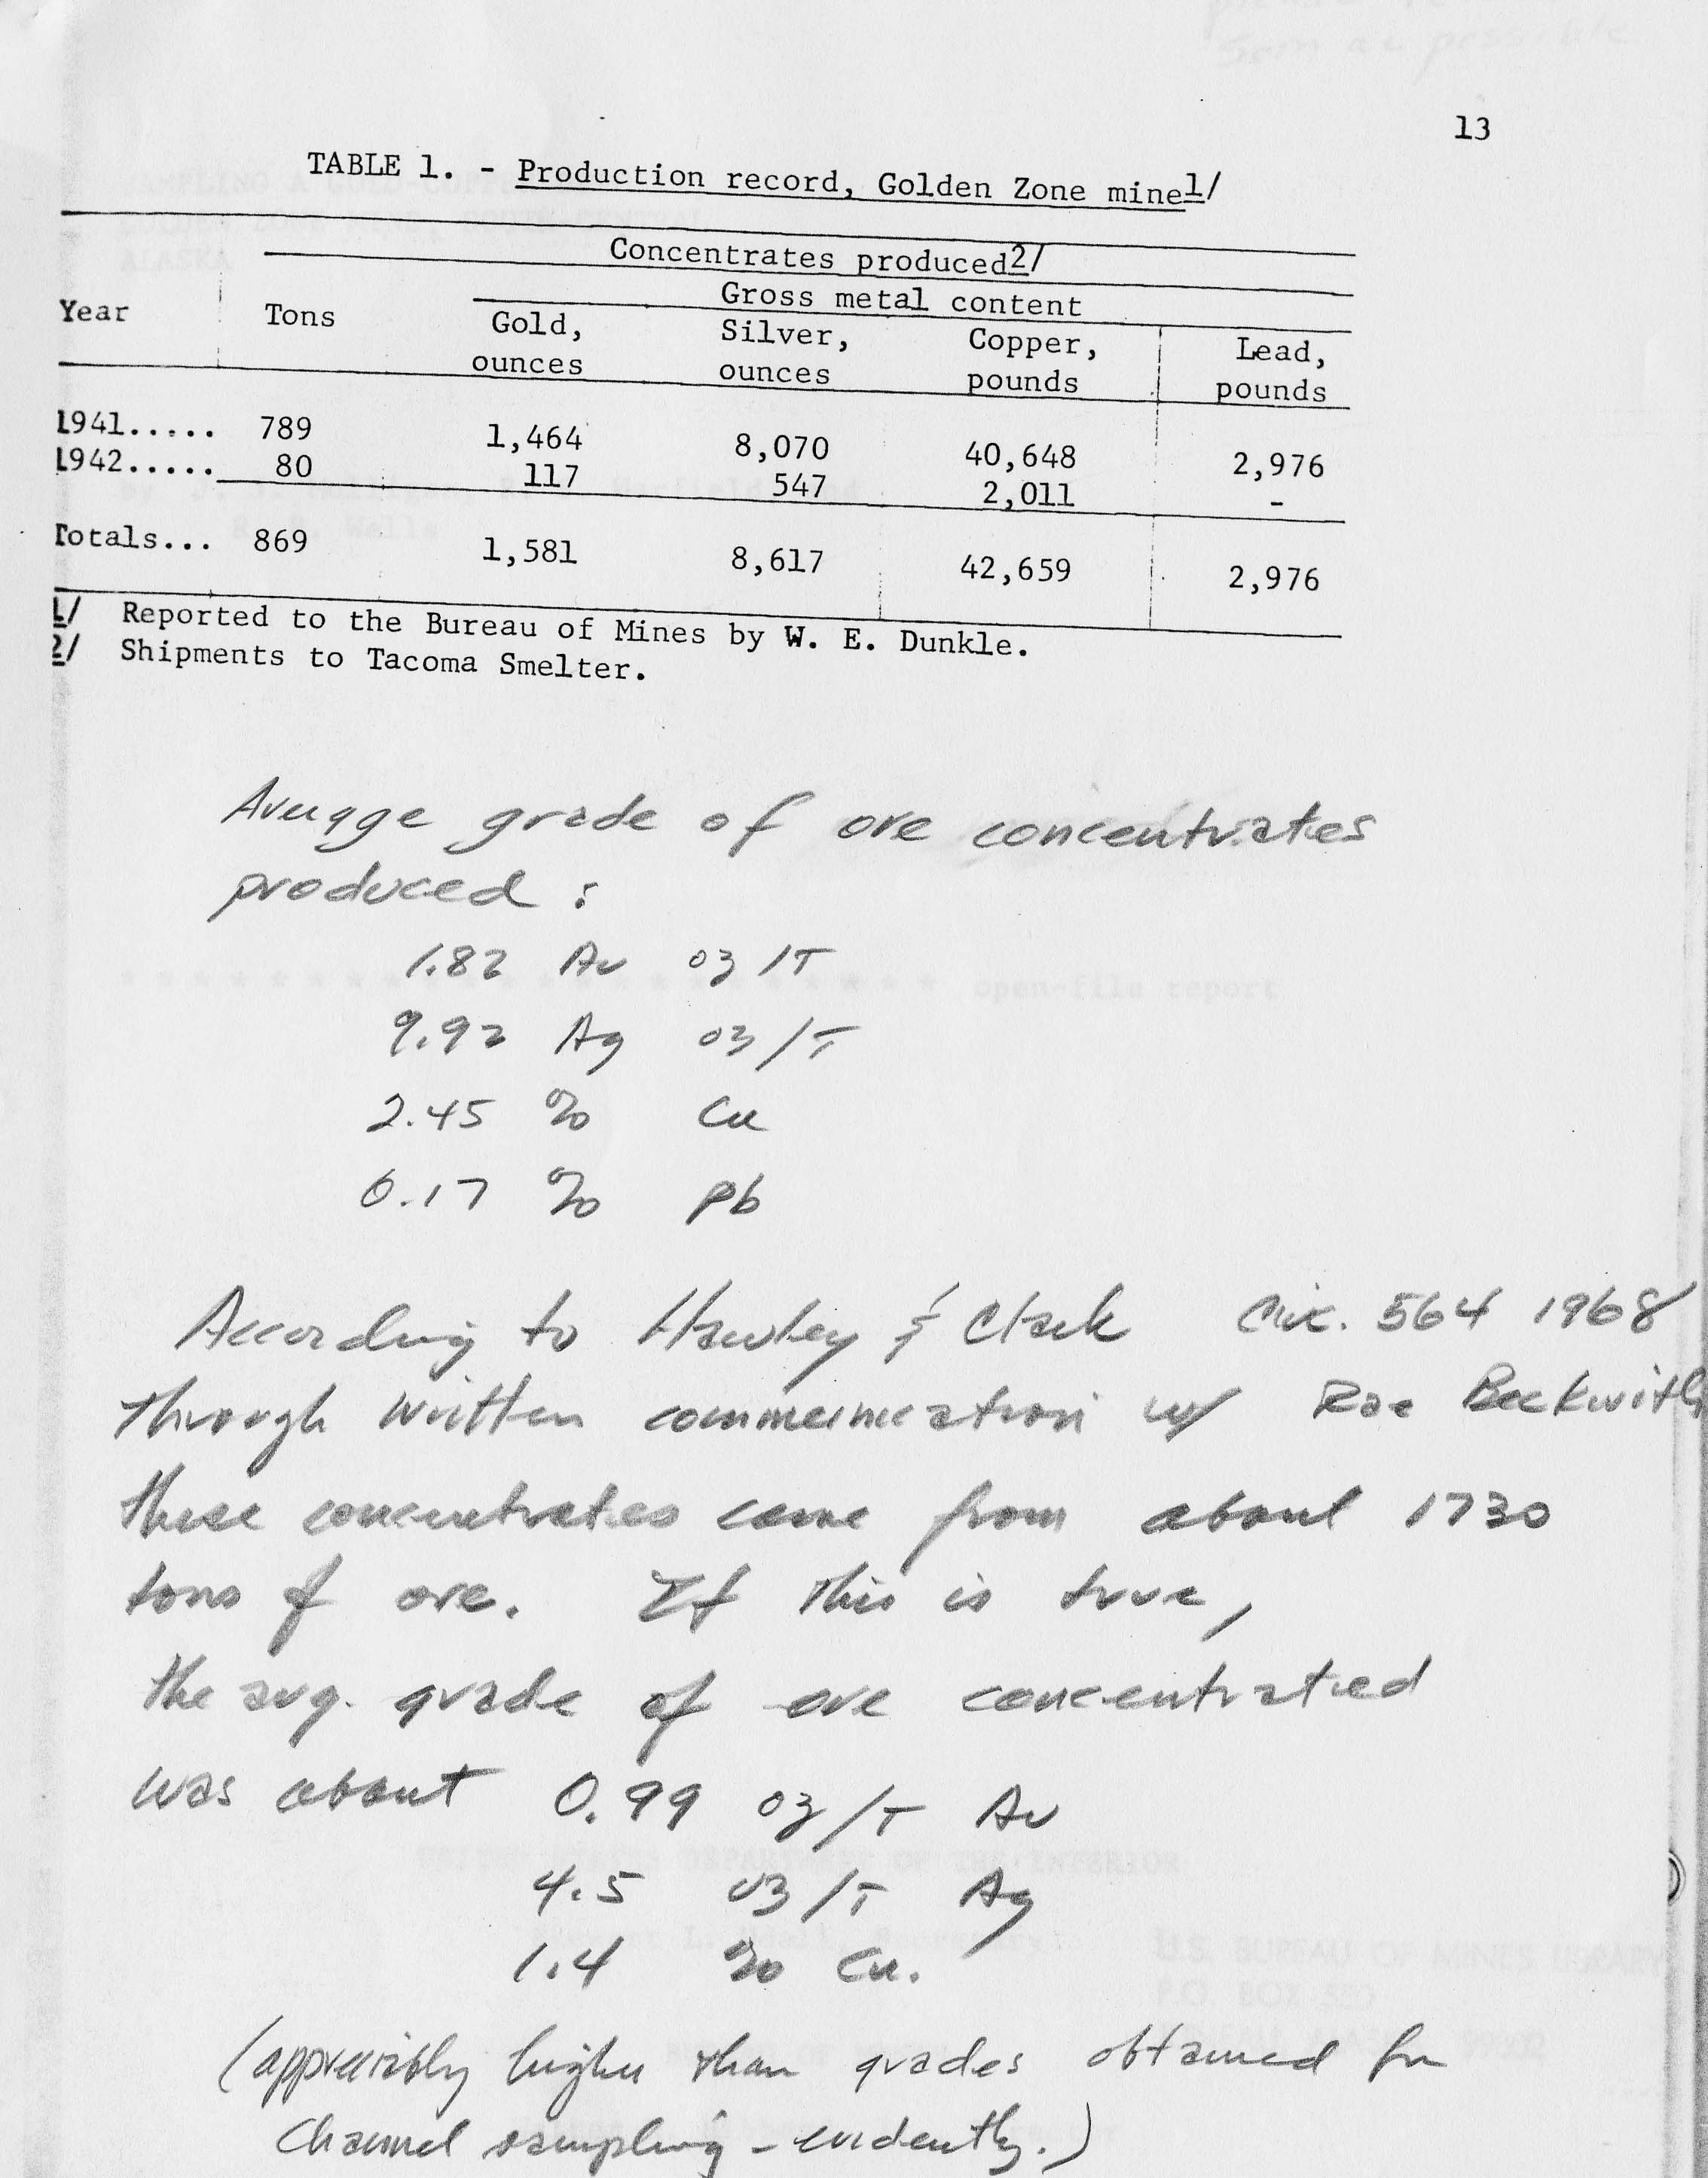 13
TABLE 1. - Production record, Golden Zone mine1/
Concentrates produced2/
Gross metal content
Year Tons Gold, ounces Silver, ounces Copper, pounds Lead, pounds
1941..... 789 1,464 8,070 40,648 2,976
1942..... 80 117 547 2,011 -
Totals... 869 1,581 8,617 42,659 2,976
1/ Reported to the Bureau of Mines by W. E. Dunkle.
2/ Shipments to Tacoma Smelter.
Average grade of ore concentrates
produced:
1.82 Au oz/T
9.92 Ag oz/T
2.45 % Cu
0.17 % Pb
According to Hawley & Clark Circ. 564 1968
through written communication w/ Rae Beckwith
these concentrates came from about 1730
tons of ore. If this is true,
the avg. grade of ore concentrated
was about 0.99 oz/T Au
4.5 oz/T Ag
1.4 % Cu.
(appreciably higher than grades obtained fm
channel sampling - evidently.)